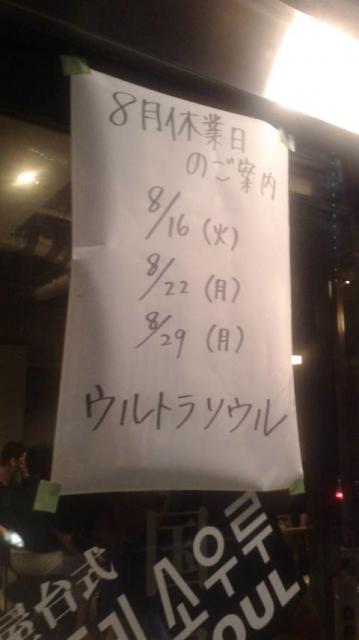 8月休業日
のご案内
8/16 (火)
8/22 (月)
8/29 (月)
ウルトラソウル
屋台式
소우루
OUL